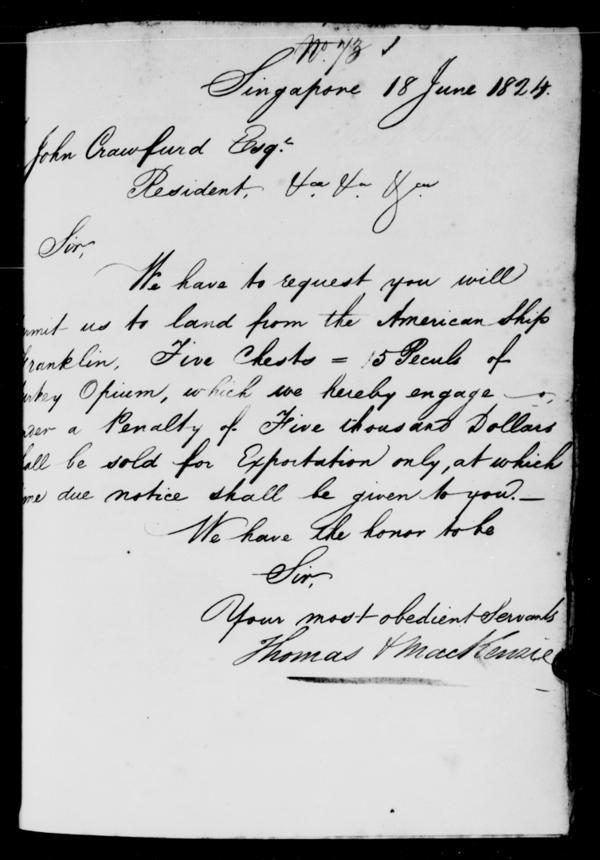 No. 73
Singapore 18 June 1824.
John Crawfurd Esqr.
Resident, &ca &ca &ca
Sir,
We have to request you will
rmit us to land from the American Ship
Franklin, Five Chests = 5 Peculs of
urkey Opium, which we hereby engage
nder a Penalty of Five thousand Dollars
hall be sold for Exportation only, at which
ime due notice shall be given to you.—
We have the honor to be
Sir,
Your most obedient Servants
Thomas & MacKenzie